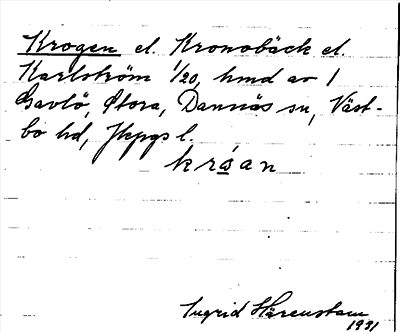 Krogen el. Kronobäck el.
Karlström 1/20, hmd av 1
Gavlö, Stora, Dannäs sn, Väst-
bo hd, Jkpgs l.
kråan
Ingrid Härenstam
1931